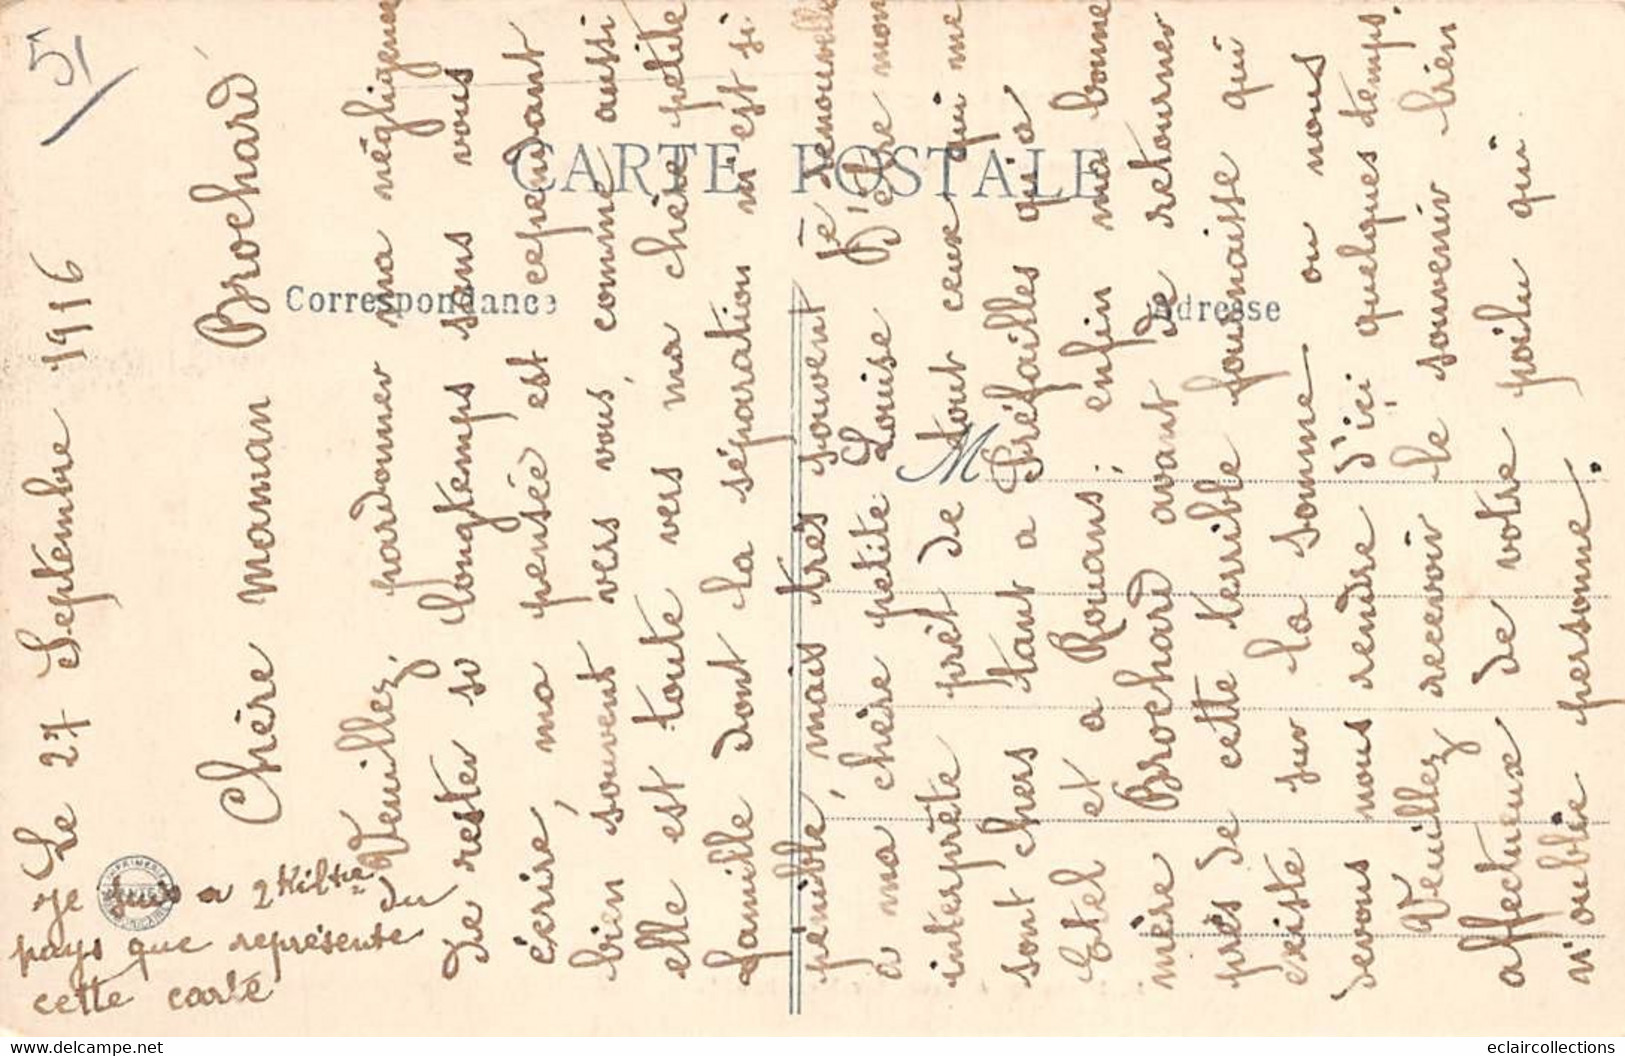 51
Le 27 Septembre 1916
Chère maman Brochard
Veuillez, pardonner ma négligence
de rester si longtemps sans vous
écrire, ma pensée est cependant
bien souvent vers vous, comme aussi
elle est toute vers ma chère petite
famille dont la séparation m'est si
pénible, mais très souvent je renouvelle
a ma chère petite Louise d'être mon
interprête prêt de tout ceux qui me
sont chers tant a Préfailles qu'a
Etel et a Rouans; enfin ma bonne
mère Brochard avant de retourner
près de cette terrible fournaisse qui
existe sur la somme ou nous
devons nous rendre d'ici quelques temps.
Veuillez recevoir le souvenir bien
affectueux de votre poilu qui
n'oublie personne.
je suis a 2 kil tre du
pays que représente
cette carte
CARTE POSTALE
Correspondance
Adresse
M
www.delcampe.net
eclaircollections